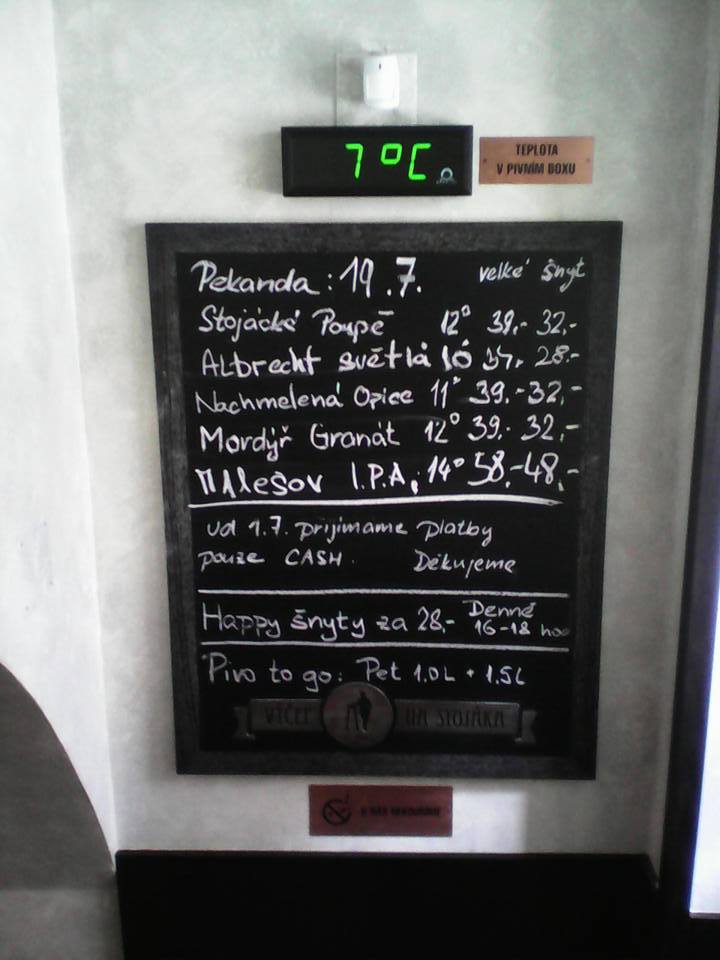 7°C
TEPLOTA
V PIVNÍM BOXU
Pekanda : 19.7. velké šnyt
Stojácké Poupě 12° 39,- 32,-
ALbrecht světlá 10 37,- 28,-
Nachmelená Opice 11° 39,- 32,-
Mordýř Granát 12° 39,- 32,-
MAlešov I.P.A. 14° 58,- 48,-
od 1.7. prijímame platby
pouze CASH. Děkujeme
Happy šnyty za 28,- Denně
16-18 hod
Pivo to go: Pet 1.0L + 1.5L
VÝČEP NA STOJÁKA
U NÁS NEKOUŘÍME